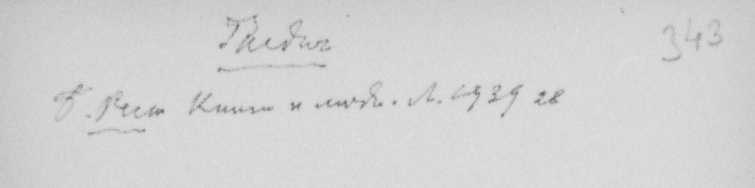 Гнедич 343
Б. Рест Книги и люди. Л. 1939 28